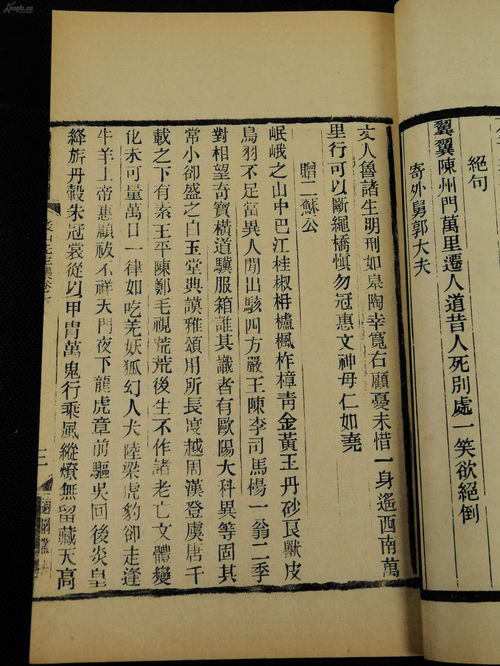 絕句
翼翼陳州門萬里遷人道昔人死別處一笑欲絕倒
寄外舅郭大夫
丈人魯諸生明刑如皋陶幸寬右顧憂未惜一身遙西南萬
里行可以斷繩橋愼勿冠惠文神母仁如堯
贈二蘇公
岷峨之山中巴江桂椒枏櫨楓柞樟靑金黃玉丹砂良獸皮
鳥羽不足當異人閒出駭四方嚴王陳李司馬楊一翁二季
對相望奇寶橫道驥服箱誰其識者有歐陽大科異等固其
常小卻盛之白玉堂典謨雅頌用所長度越周漢登虞唐千
載之下有素王平陳鄭毛視荒荒後生不作諸老亡文體變
化未可量萬口一律如吃羌妖狐幻人犬陸梁虎豹卻走逢
牛羊上帝惠顧祓不祥天門夜下龍虎章前驅吳回後炎皇
絳旂丹轂朱冠裳從以甲冑萬鬼行乘風縱燎無留藏天高
三